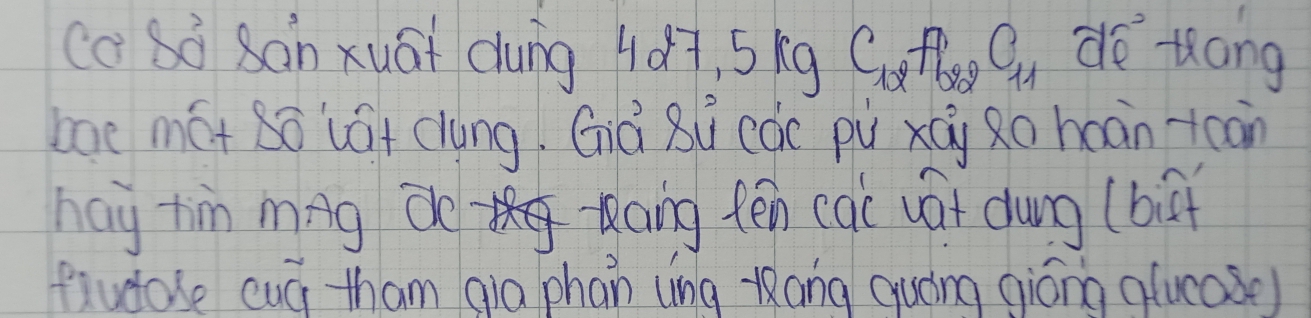 Cơ sở sản xuất dùng 427,5 kg C₁₂H₂₂O₁₁ để tráng
bạc một số vật dụng. Giả sử các pứ xảy ra hoàn toàn
hãy tìm mAg đc tráng lên các vật dụng (biết
fructose cug tham gia phản ứng tráng gương giống glucose)